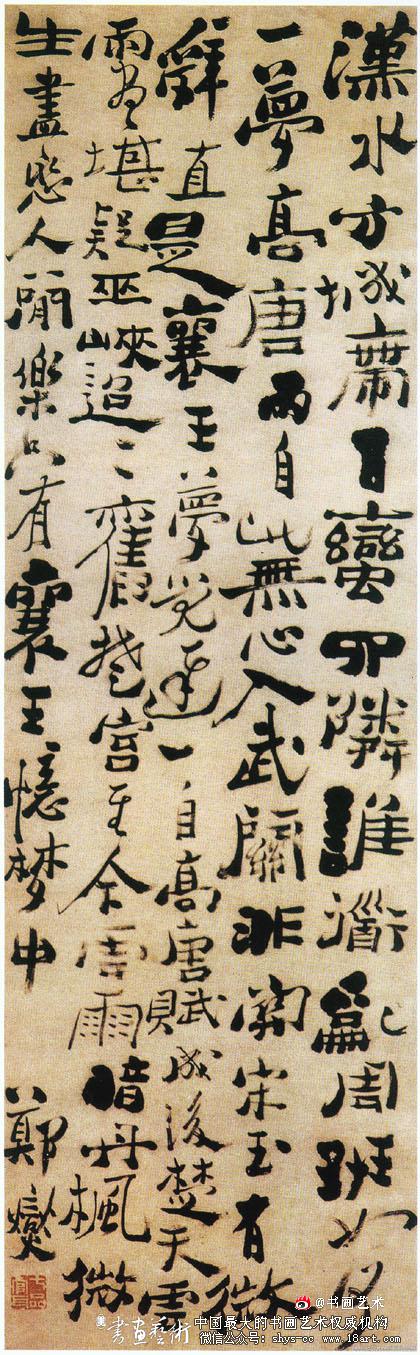 漢水方城帶百蠻四隣誰道亂周班如何
一夢高唐雨自此無心入武關非關宋玉有微
辭直是襄王夢覺遲一自高唐賦成後楚天雲
雨盡堪疑巫峽迢〻舊楚宮至今雲雨暗丹楓微
生盡戀人間樂只有襄王憶夢中 鄭燮
@书画艺术
美 書畫藝術
中国最大的书画艺术权威机构
微信公众号: shys-cc www.18art.com